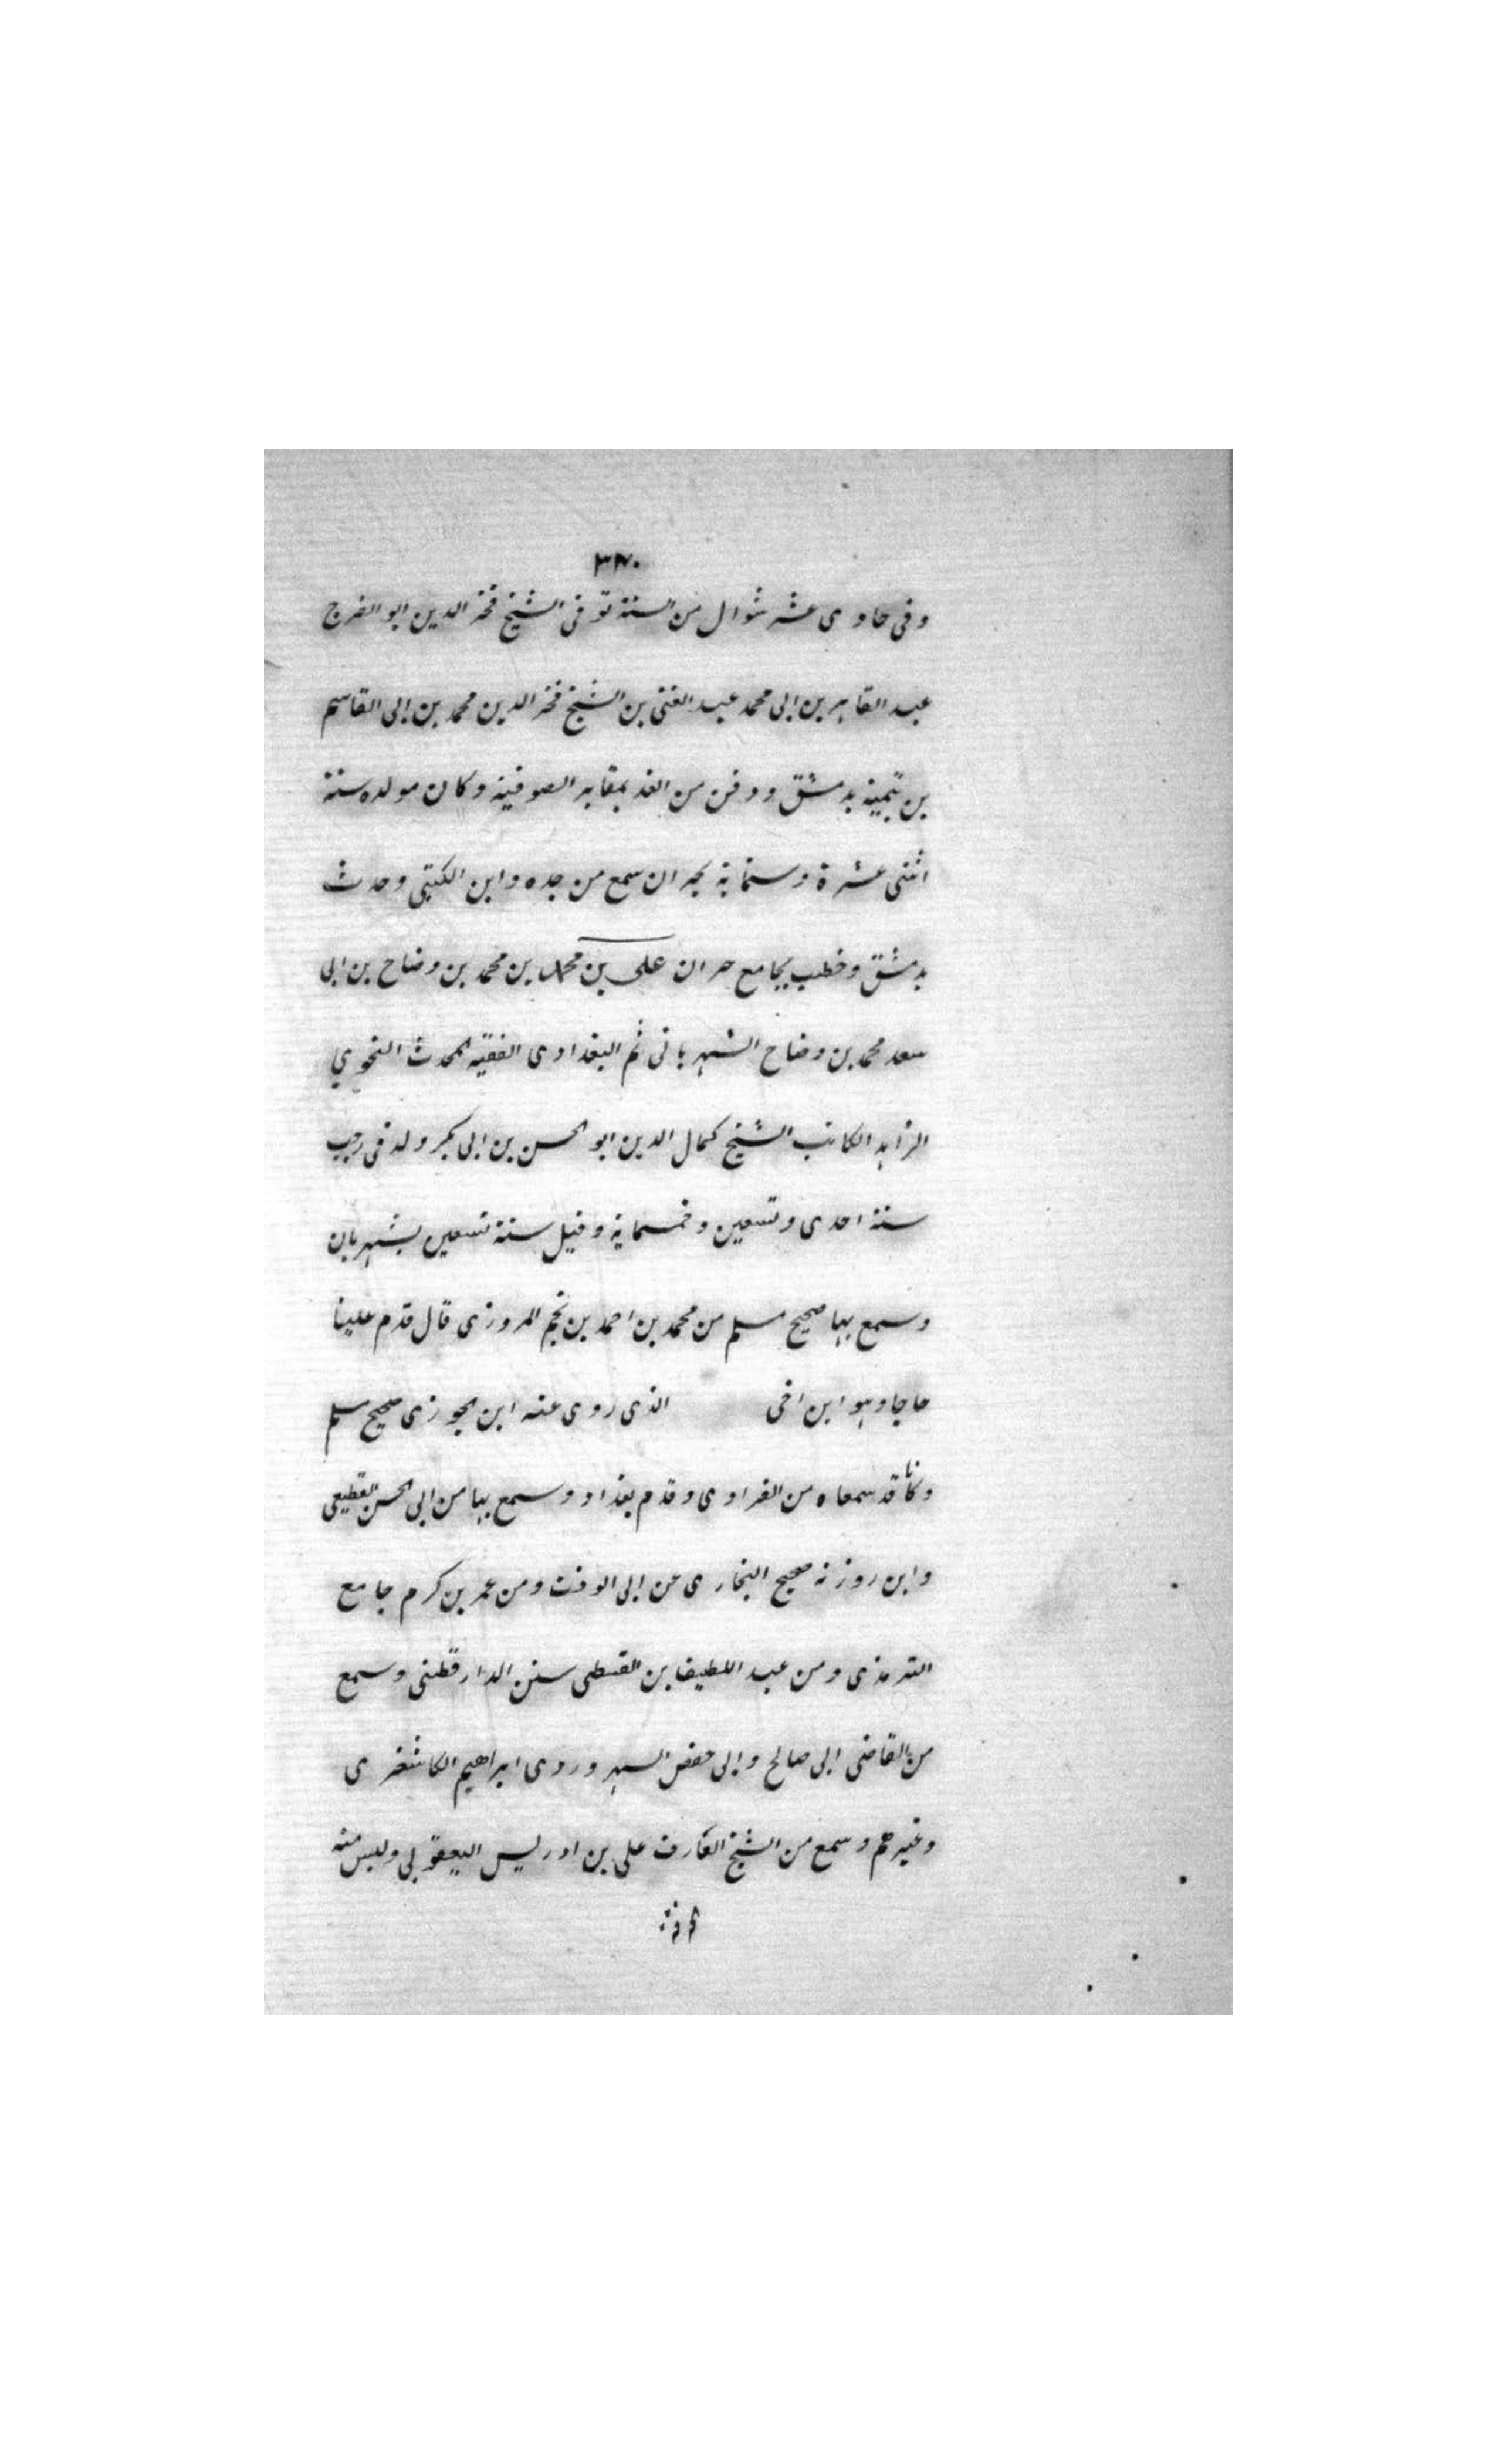 ٣٧٠
وفى حادى عشر شوال من السنة توفى الشيخ فخر الدين ابو الفرج
عبد القاهر بن ابى محمد عبد الغنى بن الشيخ فخر الدين محمد بن ابى القاسم
بن تيمية بدمشق ودفن من الغد بمقابر الصوفية وكان مولده سنة
اثنى عشرة وستماية بحران سمع من جده وابن اللتى وحدث
بدمشق وخطب بجامع حران على بن محمد بن محمد بن وضاح بن ابى
سعد محمد بن وضاح الشهربانى ثم البغدادى الفقيه المحدث النحوي
الزاهد الكاتب الشيخ كمال الدين ابو الحسن بن ابى بكر ولد فى رجب
سنة احدى وتسعين وخمسماية وقيل سنة تسعين بشهربان
وسمع بها صحيح مسلم من محمد بن احمد بن نجم المروزى قال قدم علينا
حاجا وهو ابن اخى الذى روى عنه ابن الجوزى صحيح مسلم
وكانا قد سمعاه من الفراوى وقدم بغداد وسمع بها من ابى الحسن القطيعى
وابن روزبه صحيح البخارى عن ابى الوقت ومن عمر بن كرم جامع
الترمذى ومن عبد اللطيف بن القبطى سنن الدارقطنى وسمع
من القاضى ابى صالح وابى حفص السهروردى ابراهيم الكاشغرى
وغيرهم وسمع من الشيخ العارف على بن ادريس اليعقوبي ولبس منه